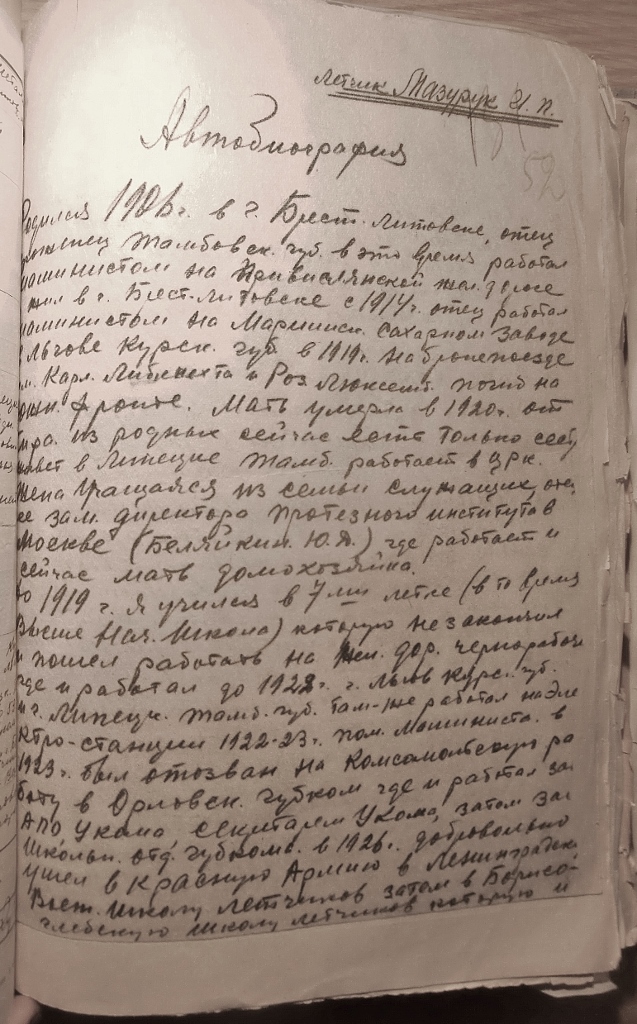 летчик Мазурук И. П.
52
Автобиография
Родился 1906 г. в г. Брест-Литовске, отец
Тамбовск. губ. в это время работал
машинистом на Привислянской жел. дороге
жил в г. Брест-Литовске с 1914 г. отец работал
машинистом на Мариинск. сахарном заводе
в Льгове Курск. губ. в 1919 г. на бронепоезде
им. Карл. Либкнехта и Роз. Люксемб. погиб на
южн. фронте. Мать умерла в 1920 г. от
из родных сейчас есть только
живет в Липецке Тамб. работает в црк.
жена из семьи служащих, отец
ее зам. директора протезного института в
Москве (Беляйкин. Ю. ) где работает и
сейчас мать домохозяйка.
до 1919 г. я учился в 7ми летке (в то время
Высше Нач. Школа) которую не закончил
и пошел работать на жел. дор. чернорабочи
где и работал до 1922 г. Льгов Курс. губ.
и г. Липецк. Тамб. губ. там-же работал на Эле
ктро-станции 1922-23 г. пом. машиниста. в
1923 г. был отозван на комсомольскую ра
боту в Орловск. губком где и работал зав
АПО укома секретарем укома, затем зав
школьн. отд. губкома. в 1926 г. добровольно
ушел в красную Армию в Ленинградск
Воен. Школу летчиков затем в Борисо-
глебскую школу летчиков которую и